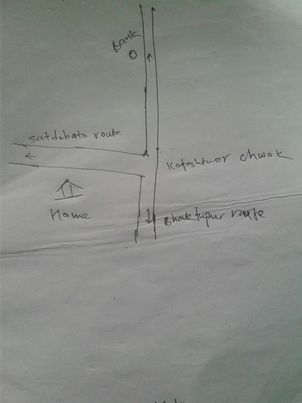 Bank
satdobato route
Koteshwor chwok
Home
Bhaktupur route